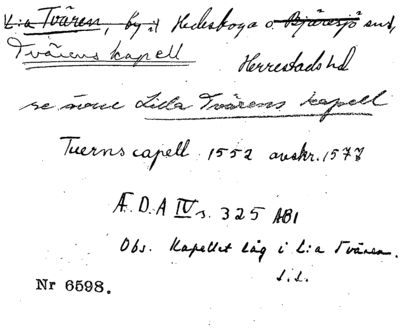 L:a Tvären, by i Hedeskoga o. Bjäresjö snd,
Tvärens kapell Herrestads hd
se även Lilla Tvärens kapell
Tuerns capell 1552 avskr. 1577
Æ.D.A IV s. 325 AB1
Obs. Kapellet låg i L:a Tvären.
s.s.
Nr 6598.